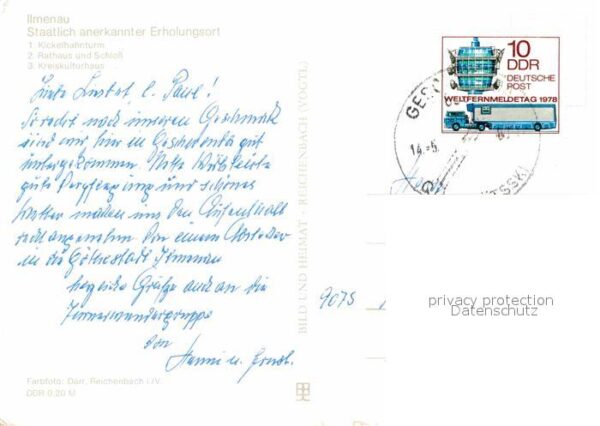 Ilmenau
Staatlich anerkannter Erholungsort
1. Kickelhahnturm
2. Rathaus und Schloß
3. Kreiskulturhaus
Liebe
So recht nach unserem Geschmack
sind wir hier in gut
untergekommen. Nette Wirtsleute
gute Verpflegung und schönes
Wetter machen uns den Aufenthalt
recht angenehm. Von einem Abstecher
in die Goethestadt Ilmenau
herzliche Grüße auch an die
von
Hanni u.
Farbfoto: Darr, Reichenbach i. V.
DDR 0,20 M
BILD UND HEIMAT · REICHENBACH (VOGTL)
10
DDR
DEUTSCHE
POST
WELTFERNMELDETAG 1978
9075
privacy protection
Datenschutz